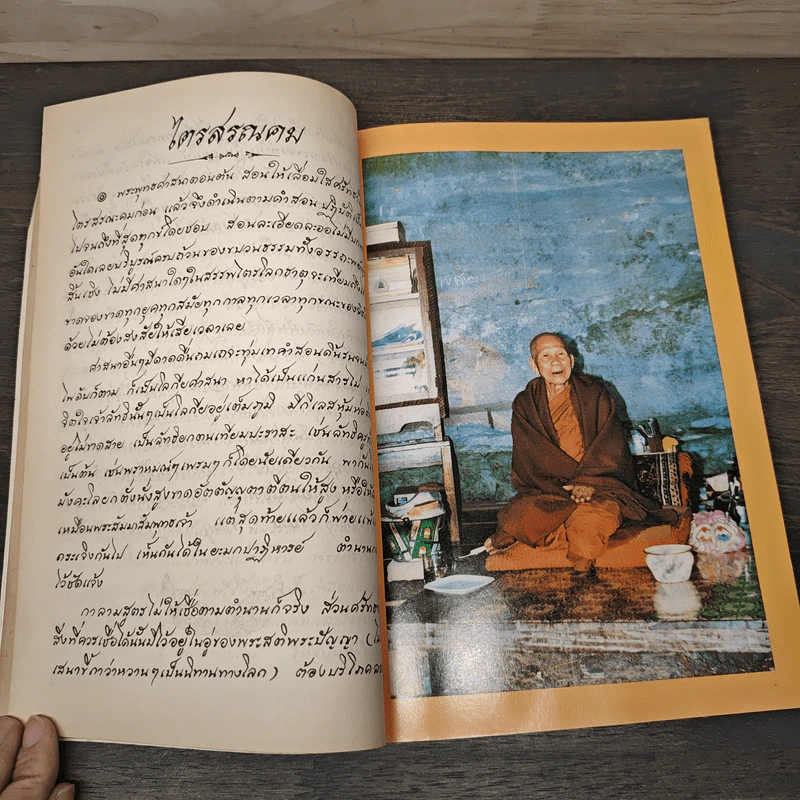 ไตรสรณคม
๑ พระพุทธศาสนาตอนต้น สอนให้เลื่อมใสศรัทธา
ไตรสรณะคมก่อน แล้วจึงดำเนินตามคำสอน ปฏิบัติ
ไปจนถึงที่สุดทุกข์โดยชอบ สอนละเอียดละออไม่มี
อันใดเลยบริบูรณ์ครบถ้วนของขบวนธรรมทั้งอรรถะ
สิ้นเชิง ไม่มีศาสนาใดๆในสรรพไตรโลกธาตุจะเทียม
ขาดจองขาดทุกยุคทุกสมัยทุกกาลทุกเวลาทุกขณะของ
ด้วยไม่ต้องสงสัยให้เสียเวลาเลย
ศาสนาอื่นๆมีดาดดื่นถมเถจะทุ่มเทคำสอนดิ้นรน
ไพล้นก็ตาม ก็เป็นโลกีย์ศาสนา หาได้เป็นแก่นสารไม่
จิตใจเจ้าลัทธินั้นๆเป็นโลกีย์อยู่เต็มภูมิ มีกิเลสหุ้มห่อ
อยู่ไม่ขาดสาย เป็นลัทธิยกตนเทียมปะราสะ เช่นลัทธิครู
เป็นต้น เช่นพราหมณ์ๆเพรมๆก็โดยนัยเดียวกัน พากัน
มังคะโลยกตั้งนั่งสูงขาดอัตตัญญุตาตีตนให้สูง หรือให้
เหมือนพระสัมมาสัมพุทธเจ้า แต่สุดท้ายแล้วก็พ่ายแพ้
กระเจิงกันไป เห็นกันได้ในยะมกปาฏิหารย์ ตำนาน
ไว้ชัดแจ้ง
กาลามสูตรไม่ให้เชื่อตามตำนานก็จริง ส่วนศรัทธา
สิ่งที่ควรเชื่อได้นั้นมีไว้อยู่ในอู่ของพระสติพระปัญญา (
เสนาขี้กาว่าหวานๆเป็นนิทานทางโลก) ต้องบริโภค